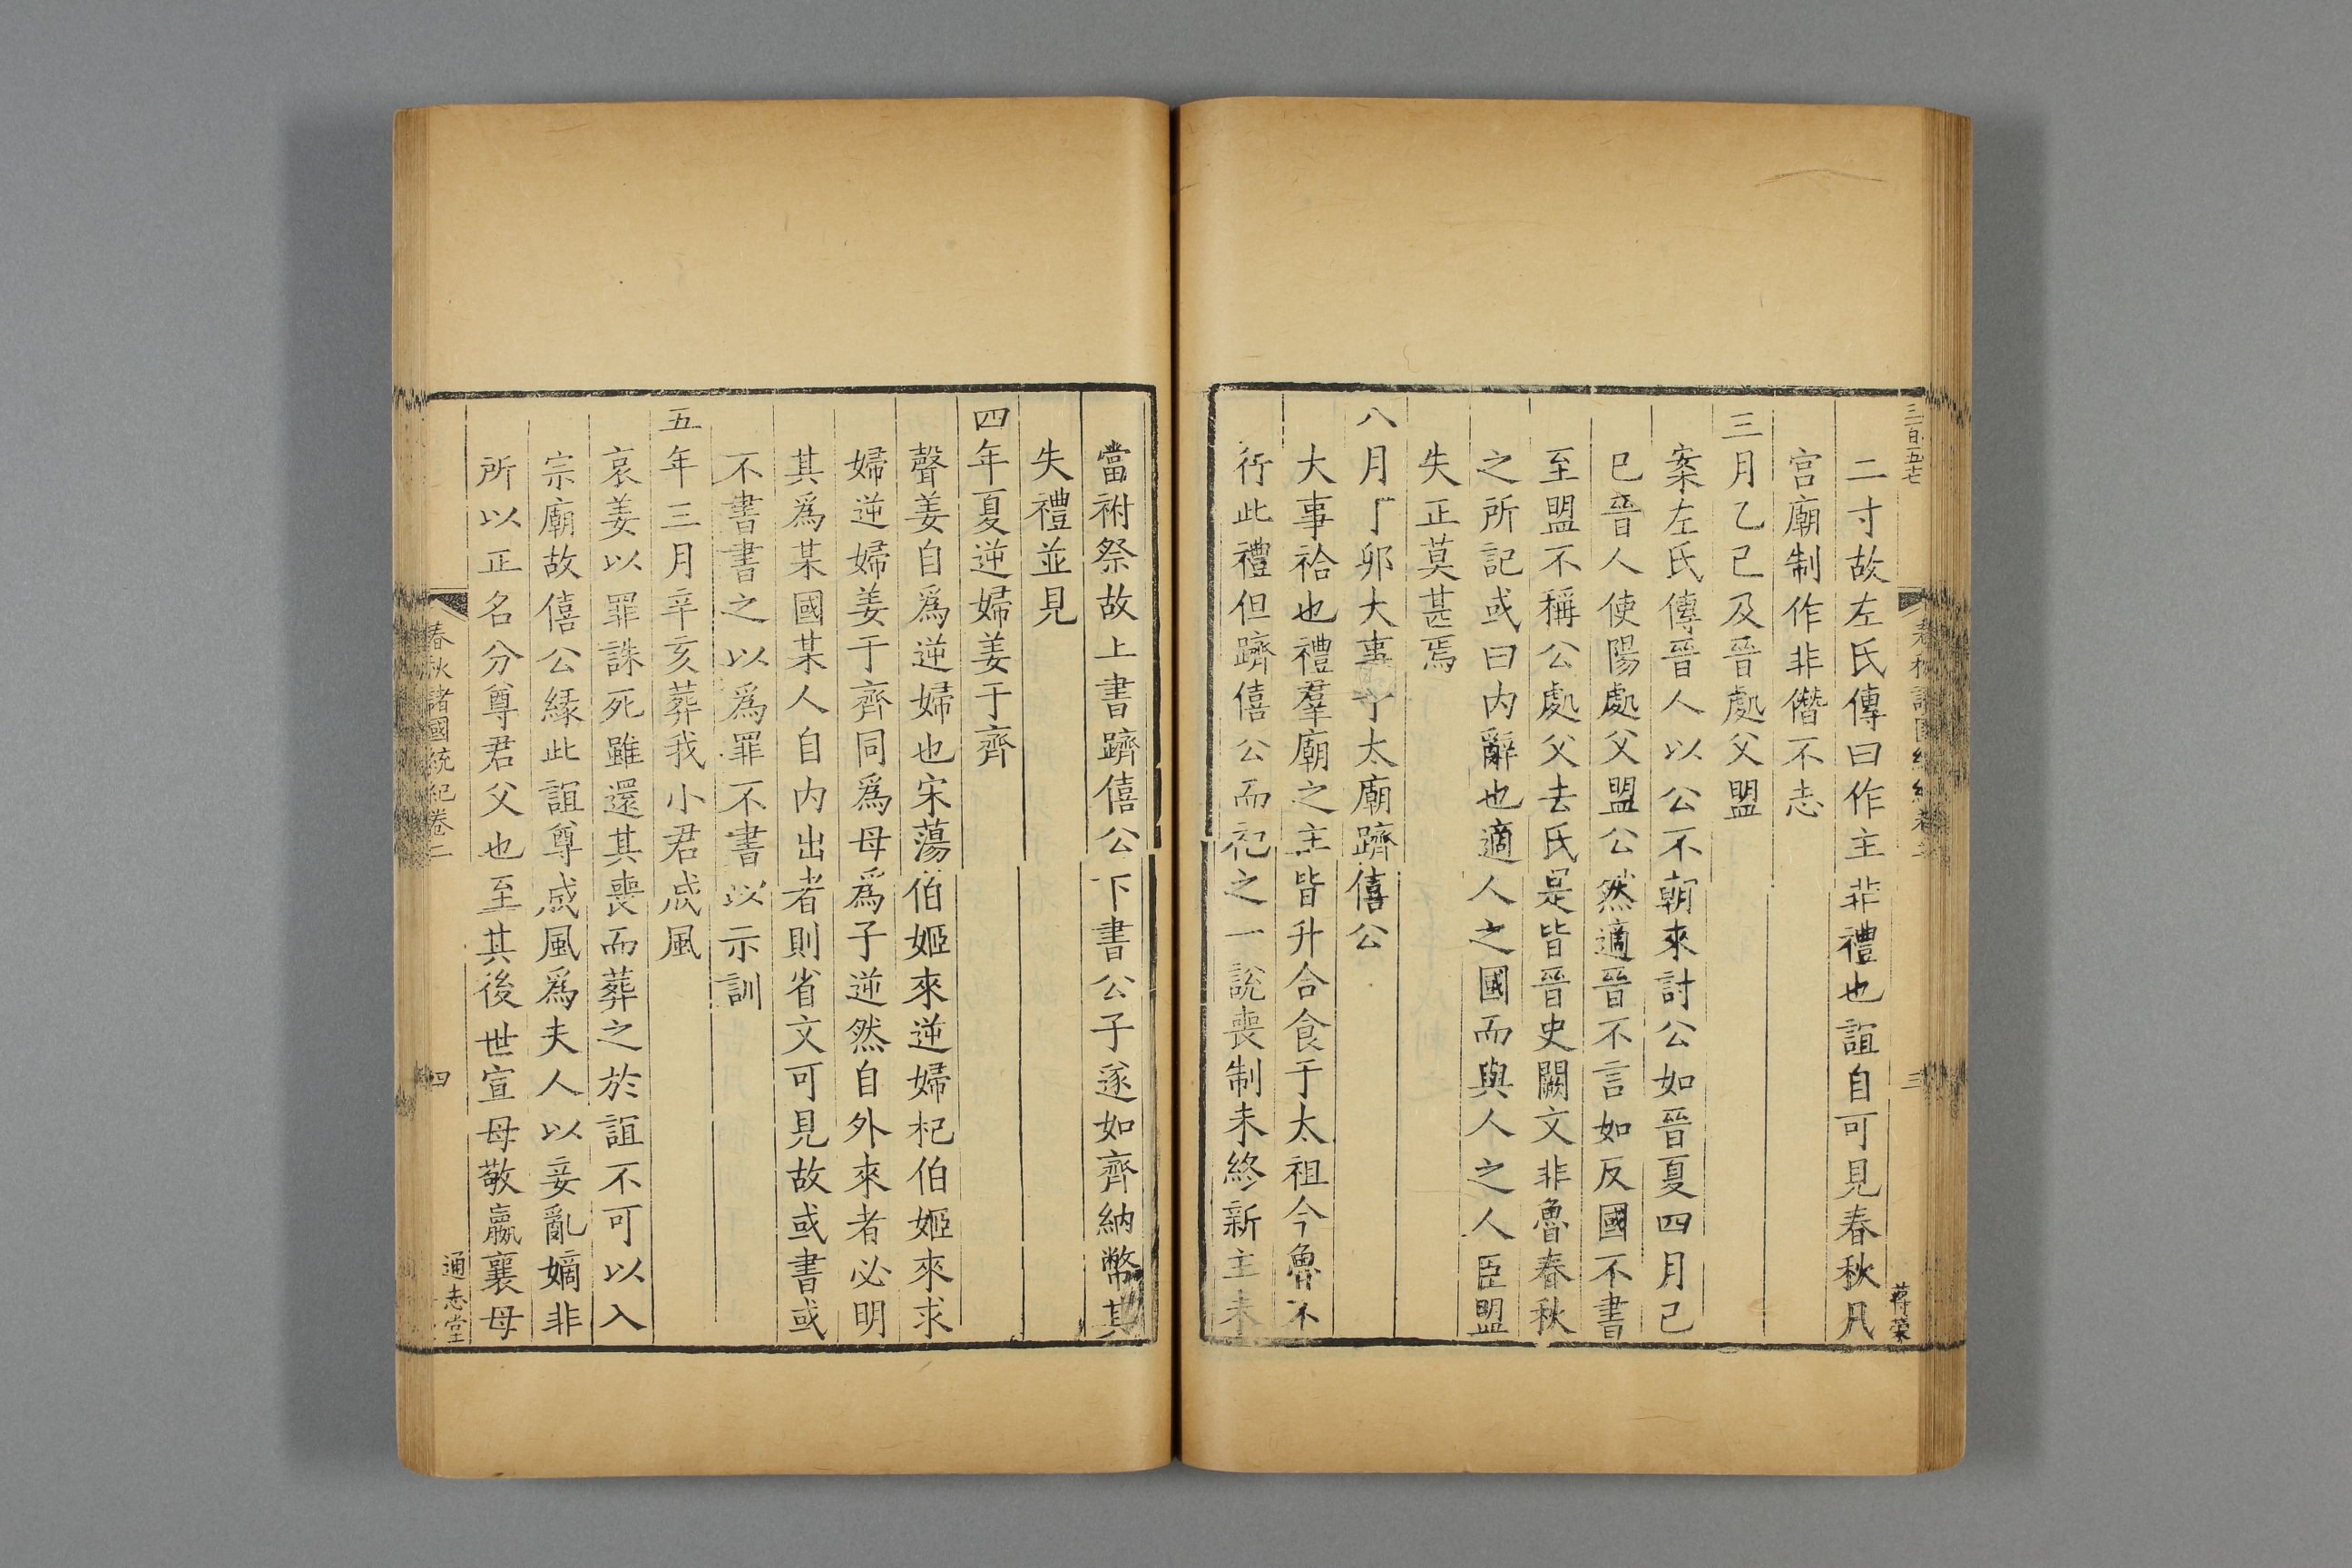 三百五七
二寸故左氏傳曰作主非禮也誼自可見春秋凡
宮廟制作非僭不志
三月乙巳及晉處父盟
案左氏傳晉人以公不朝來討公如晉夏四月己
巳晉人使陽處父盟公然適晉不言如反國不書
至盟不稱公處父去氏是皆晉史闕文非魯春秋
之所記或曰内辭也適人之國而與人之人臣盟
失正莫甚焉
八月丁卯大事于太廟躋僖公
大事祫也禮羣廟之主皆升合食于太祖今魯不
行此禮但躋僖公而祀之一說喪制未終新主未
三
蔣榮
當祔祭故上書躋僖公下書公子遂如齊納幣其
失禮並見
四年夏逆婦姜于齊
聲姜自爲逆婦也宋蕩伯姬來逆婦杞伯姬來求
婦逆婦姜于齊同爲母爲子逆然自外來者必明
其爲某國某人自内出者則省文可見故或書或
不書書之以爲罪不書以示訓
五年三月辛亥葬我小君成風
哀姜以罪誅死雖還其喪而葬之於誼不可以入
宗廟故僖公緣此誼尊成風爲夫人以妾亂嫡非
所以正名分尊君父也至其後世宣母敬嬴襄母
春秋諸國統紀卷二
四
通志堂